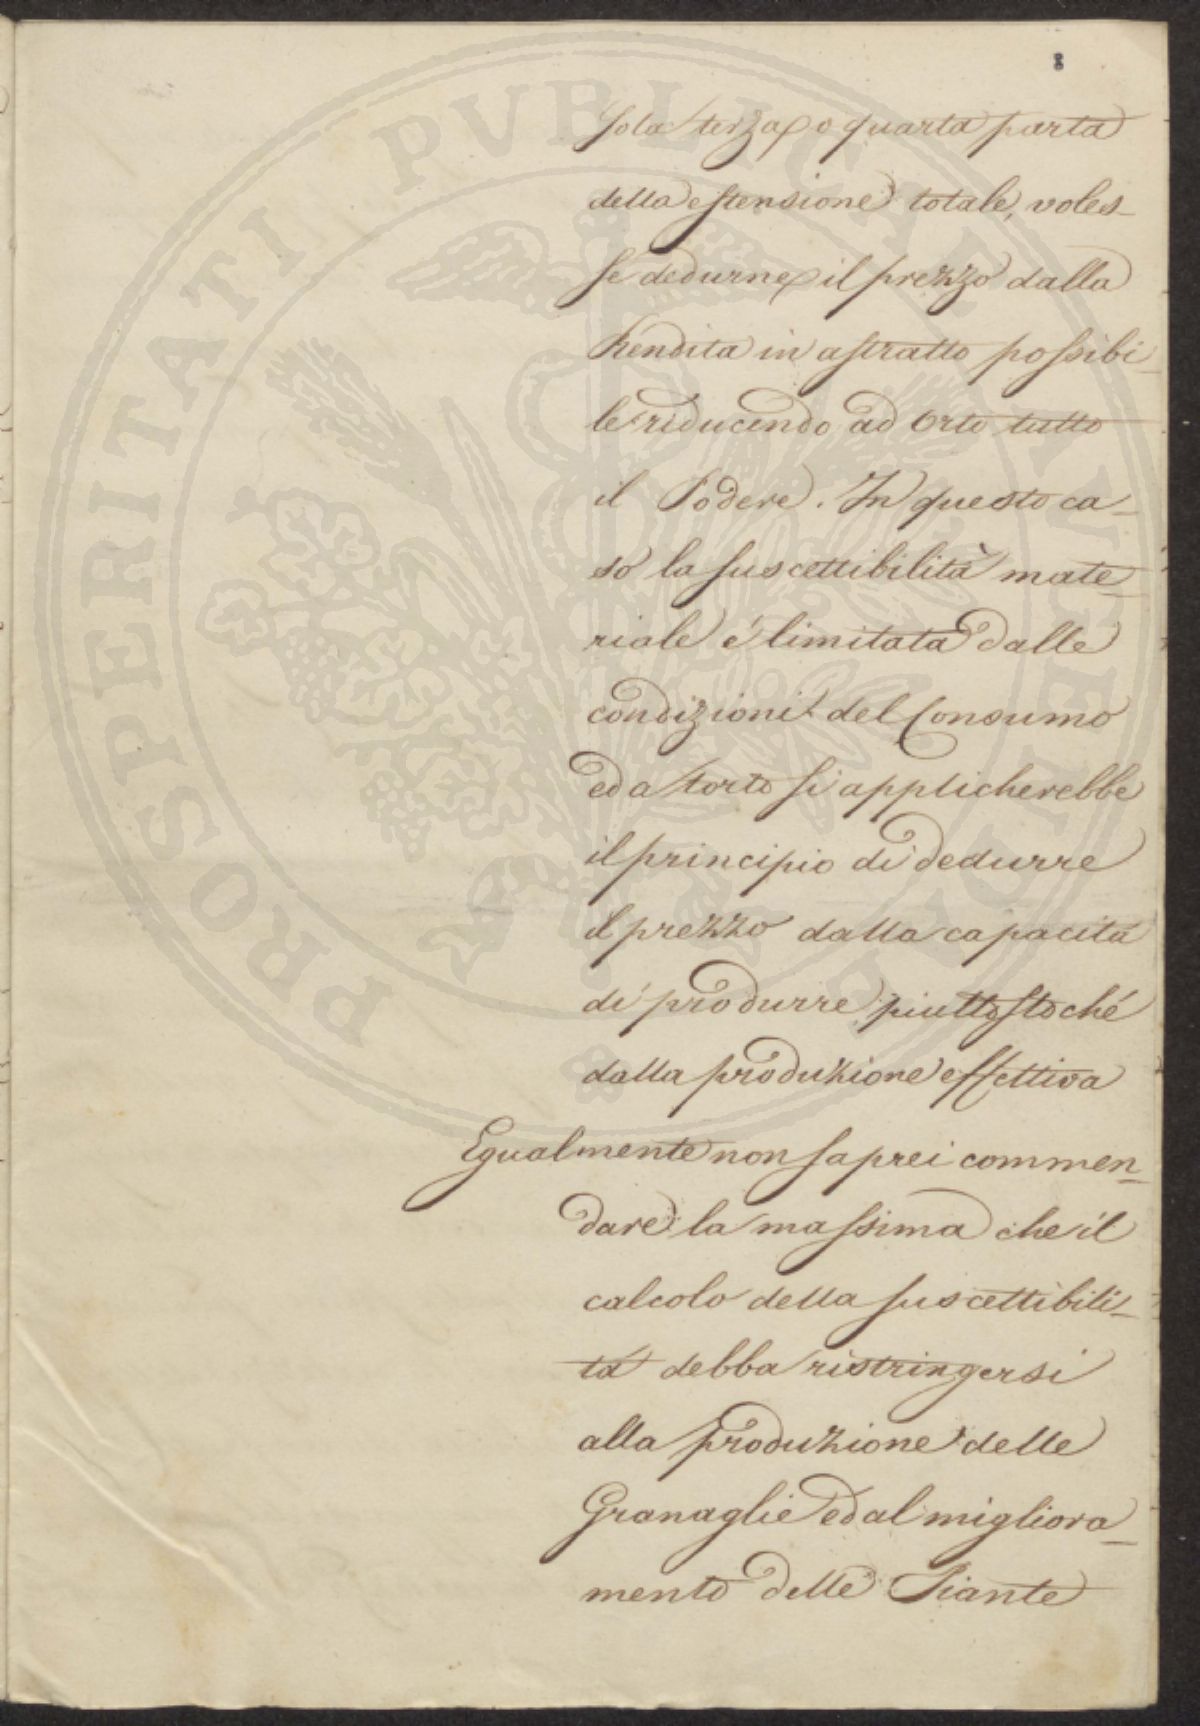 8
sola terza, o quarta parta
della estensione totale, voles-
se dedurne, il prezzo dalla
Rendita in astratto possibi-
le riducendo ad Orto tutto
il Podere. In questo ca-
so la suscettibilità mate-
riale é limitata dalle
condizioni del Consumo
ed a torto si applicherebbe
il principio di dedurre
il prezzo dalla capacità
di produrre piuttostoché
dalla produzione effettiva
Egualmente non saprei commen-
dare la massima che il
calcolo della suscettibili-
tá debba ristringersi
alla produzione delle
Granaglie ed al migliora-
mento delle Piante
PROSPERITATI PVBLICAE AVGENDAE